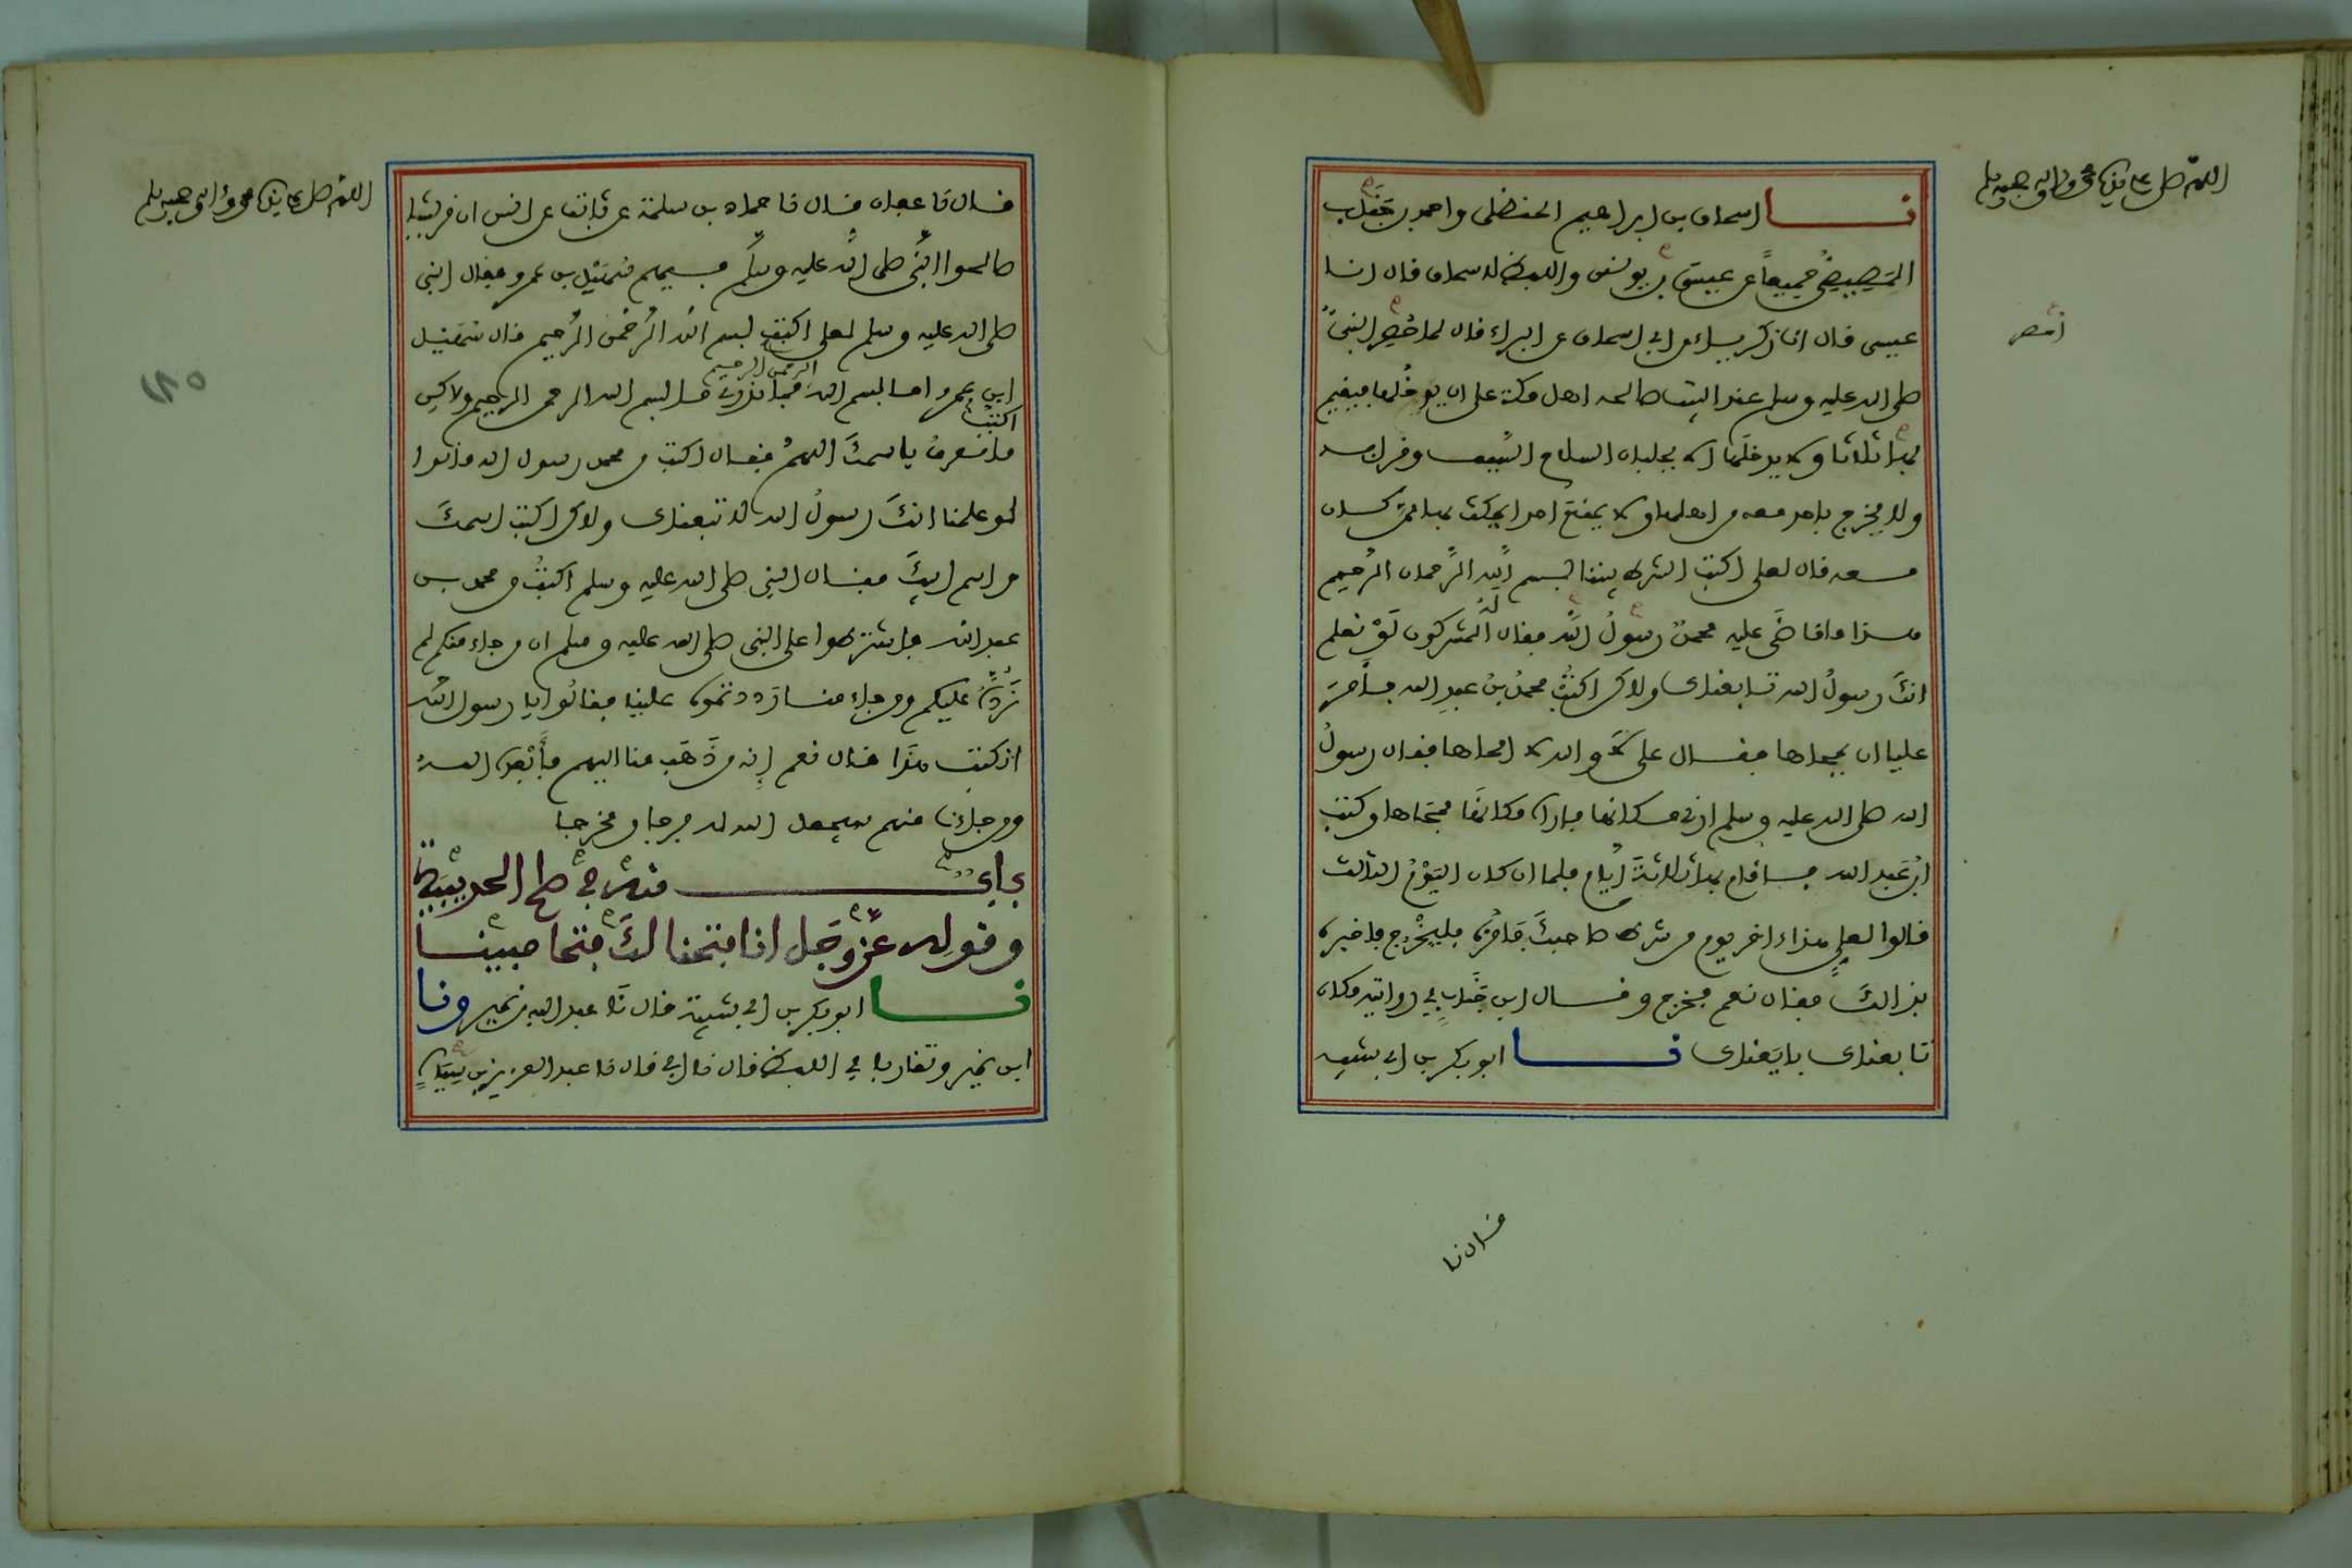 اللهم صل على سيدنا محمد وءاله وصحبه وسلم
نا اسحاق بن ابراهيم الحنظلي واحمد بن جناب
المصيصي جميعا عن عيسى بن يونس واللفظ لاسحاق قال انا
عيسى قال انا زكرياء عن ابي اسحاق عن البراء قال لما احصر النبي
صلى الله عليه وسلم عند البيت صالحه اهل مكة على ان يدخلها فيقيم
بها ثلاثا ولا يدخلها الا بجلبان السلاح السيف وقرابه
ولا يخرج باحد معه من اهلها ولا يمنع احدا يمكث بها ممن كان
معه قال لعلي اكتب الشرط بيننا بسم الله الرحمان الرحيم
هذا ما قاضى عليه محمد رسول الله فقال له المشركون لو نعلم
انك رسول الله تابعناك ولاكن اكتب محمد بن عبد الله فامر
عليا ان يمحاها فقال علي لا والله لا امحاها فقال رسول
الله صلى الله عليه وسلم ارني مكانها فاراه مكانها فمحاها وكتب
ابن عبد الله فاقام بها ثلاثة ايام فلما ان كان اليوم الثالث
قالوا لعلي هذاء اخر يوم من شرط صاحبك فامره فليخرج فاخبره
بذالك فقال نعم فخرج وقال ابن جناب في روايته مكان
تابعناك بايعناك نا ابو بكر بن ابي شيبه
قال نا
اللهم صل على سيدنا محمد وءاله وصحبه وسلم
قال نا عفان قال نا حماد بن سلمة عن ثابت عن انس ان قريشا
صالحوا النبي صلى الله عليه وسلم فيهم سهيل بن عمرو فقال النبي
صلى الله عليه وسلم لعلي اكتب بسم الله الرحمن الرحيم قال سهيل
ابن عمرو اما بسم الله الرحمن الرحيم فما ندري ما بسم الله الرحمن الرحيم ولاكن
اكتب ما نعرف باسمك اللهم فقال اكتب من محمد رسول الله قالوا
لو علمنا انك رسول الله لاتبعناك ولاكن اكتب اسمك
واسم ابيك فقال النبي صلى الله عليه وسلم اكتب من محمد بن
عبد الله فاشترطوا على النبي صلى الله عليه وسلم ان من جاء منكم لم
نرده عليكم ومن جاء منا رددتموه علينا فقالوا يا رسول الله
انكتب هذا قال نعم انه من ذهب منا اليهم فابعده الله
ومن جاءنا منهم سيجعل الله له فرجا ومخرجا
باب منه في صلح الحديبية
وقوله عز وجل انا فتحنا لك فتحا مبينا
نا ابو بكر بن ابي شيبة قال نا عبد الله بن نمير ونا
ابن نمير وتقاربا في اللفظ قال نا ابي قال نا عبد العزيز بن سياه